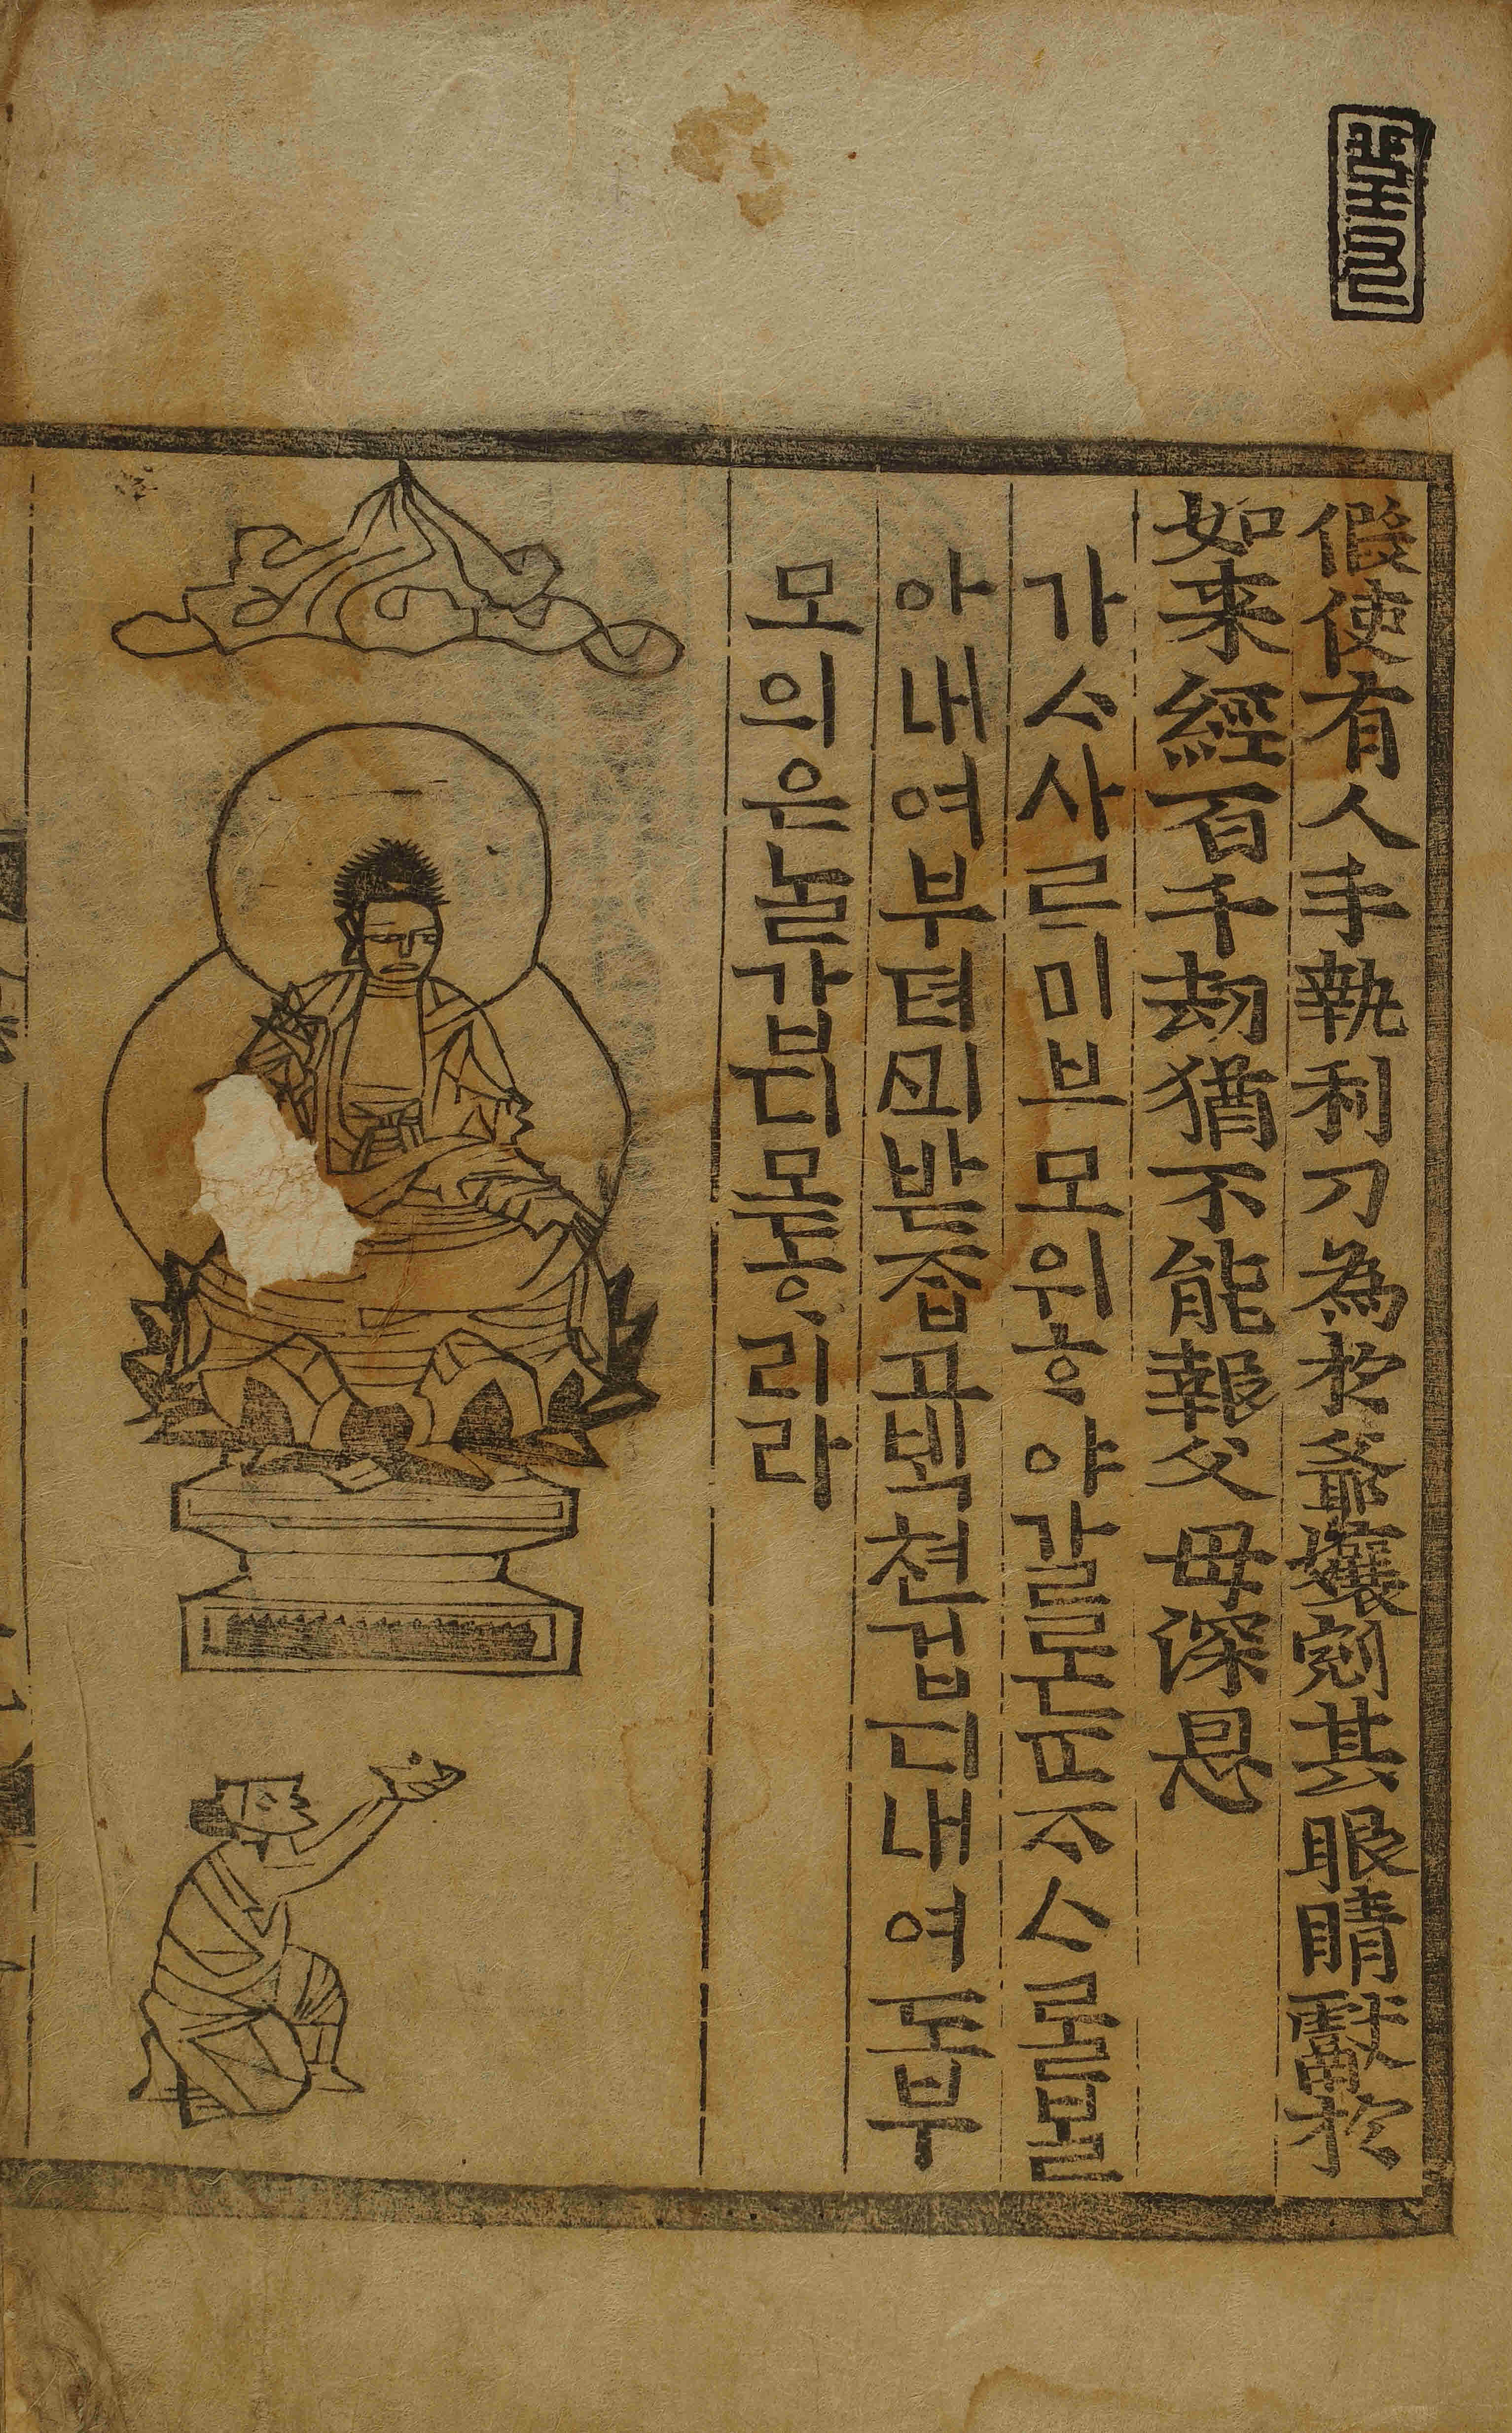 假使有人手執利刀為於爺孃剜其眼睛獻於
如来經百千劫猶不能報父母深恩
가ᄉᆞ사ᄅᆞ미브모위ᄒᆞ야갈로ᄂᆞᆫᄌᆞᅀᆞᄅᆞᆯ볼
아내여부텨ᄭᅴ받ᄌᆞᆸ고ᄇᆡᆨ쳔겁디내여도부
모의은ᄂᆞᆯ가ᄇᆞ디몯ᄒᆞ리라